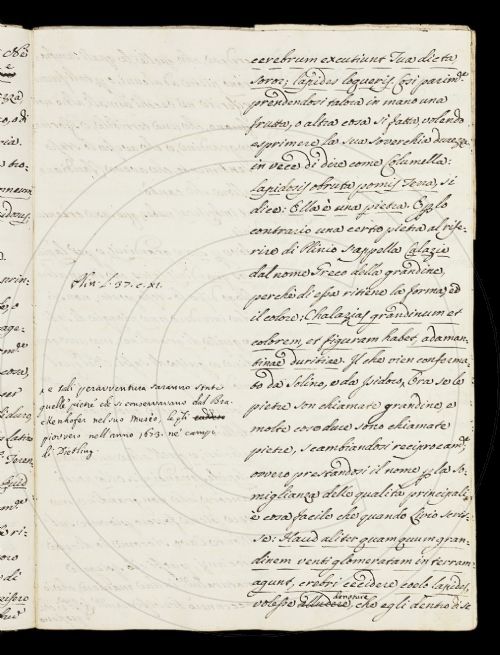 cerebrum excutiunt Tua dicta
soror; lapides loqueris. Così parim.te
prendendosi talora in mano una
frutta, o altra cosa sì fatta, volendo
esprimere la sua soverchia durezza
in vece di dire come Columella:
lapidosis obruta pomis Terra, si
dice: Ella è una pietra. E per lo
contrario una certa pietra al rife-
rire di Plinio s'appella Calazia
dal nome Greco della grandine,
perchè di essa ritiene la forma, ed
il colore: Chalazias grandinum et
colorem, et figuram habet, adaman-
tinae duritiae. Il che vien conferma-
to da Solino, e da Isidoro. Ora se le
pietre son chiamate grandine, e
molte cose dure sono chiamate
pietre, scambiandosi reciprocam.te
ovvero prestandosi il nome per la so-
miglianza delle qualità principali,
è cosa facile che quando Livio scris-
se: Haud aliter quam quum gran-
dinem venti glomeratam in terram
agunt, crebri cecidere coelo lapides,
volesse alludere denotare, che egli dentro di se
Plin. l. 37. c. XI.
x e tali peravventura saranno state
quelle pietre che si conservavano dal Bra-
ckenhofer nel suo museo, le quali
piovvero nell'anno 1673. ne' campi
di Dietling.